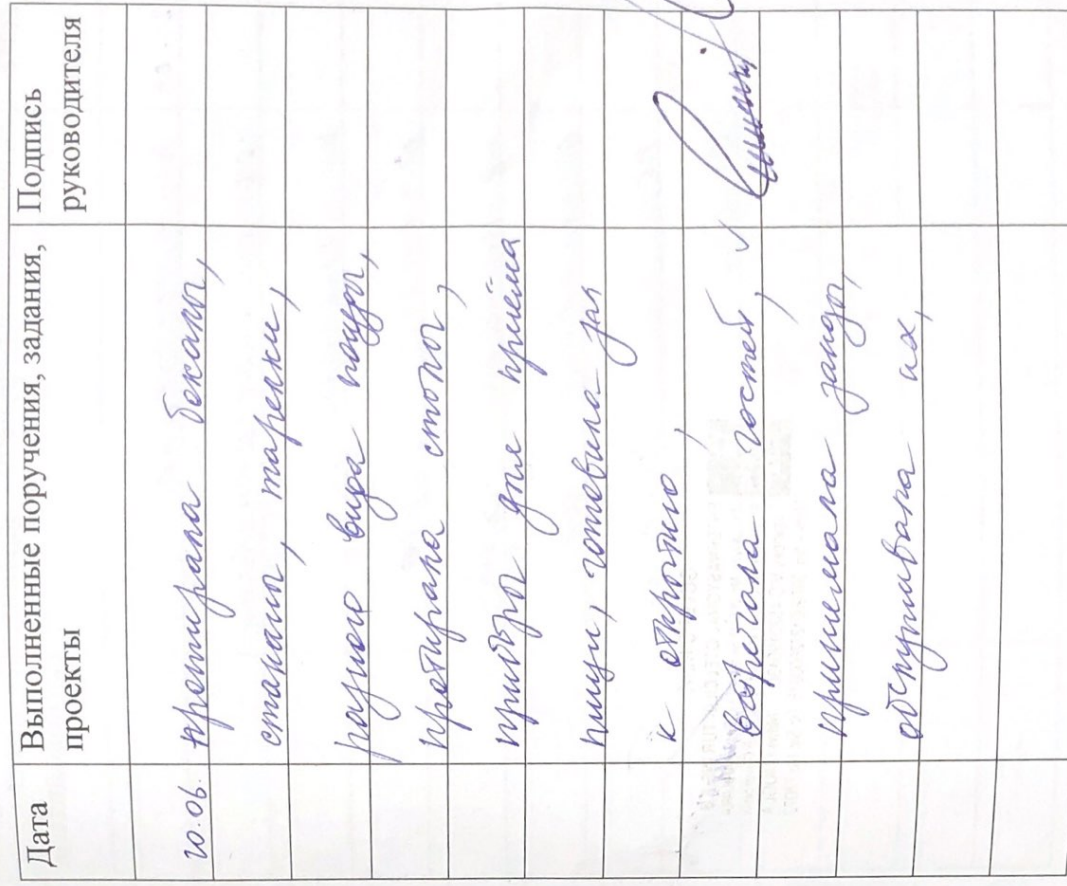 Дата Выполненные поручения, задания, Подпись
проекты руководителя
20.06. протирала бокалы,
стаканы, тарелки,
разного вида
протирала столы,
приборы для приёма
пищи, готовила зал
к открытию,
встречала гостей, ✓
принимала заказы,
обслуживала их,